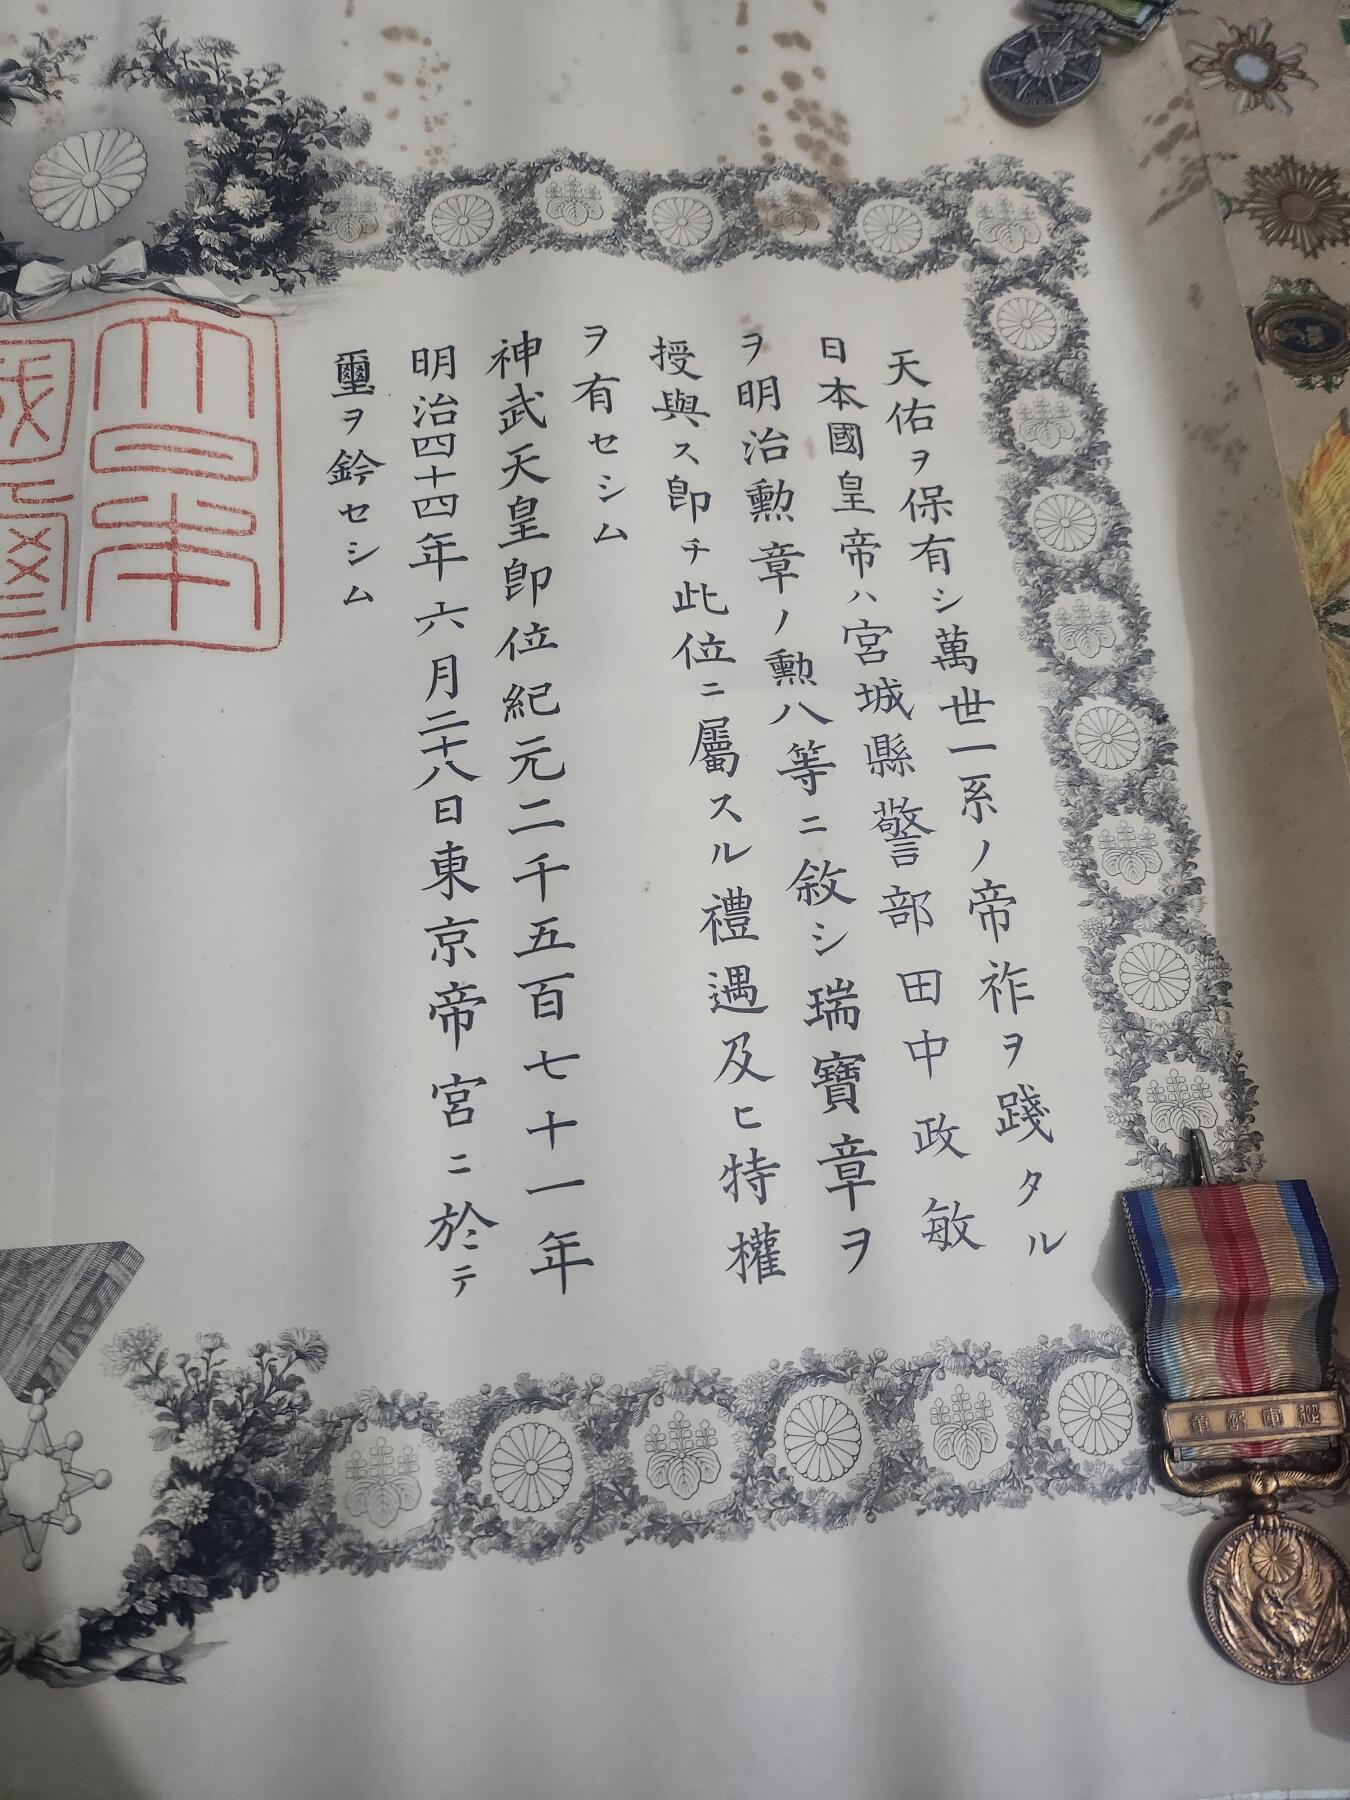 天佑ヲ保有シ萬世一系ノ帝祚ヲ踐タル
日本國皇帝ハ宮城縣警部田中政敏
ヲ明治勲章ノ勲八等ニ敘シ瑞寶章ヲ
授與ス即チ此位ニ屬スル禮遇及ヒ特權
ヲ有セシム
神武天皇即位紀元二千五百七十一年
明治四十四年六月二十八日東京帝宮ニ於テ
璽ヲ鈐セシム
大日本
國璽
章形軍從